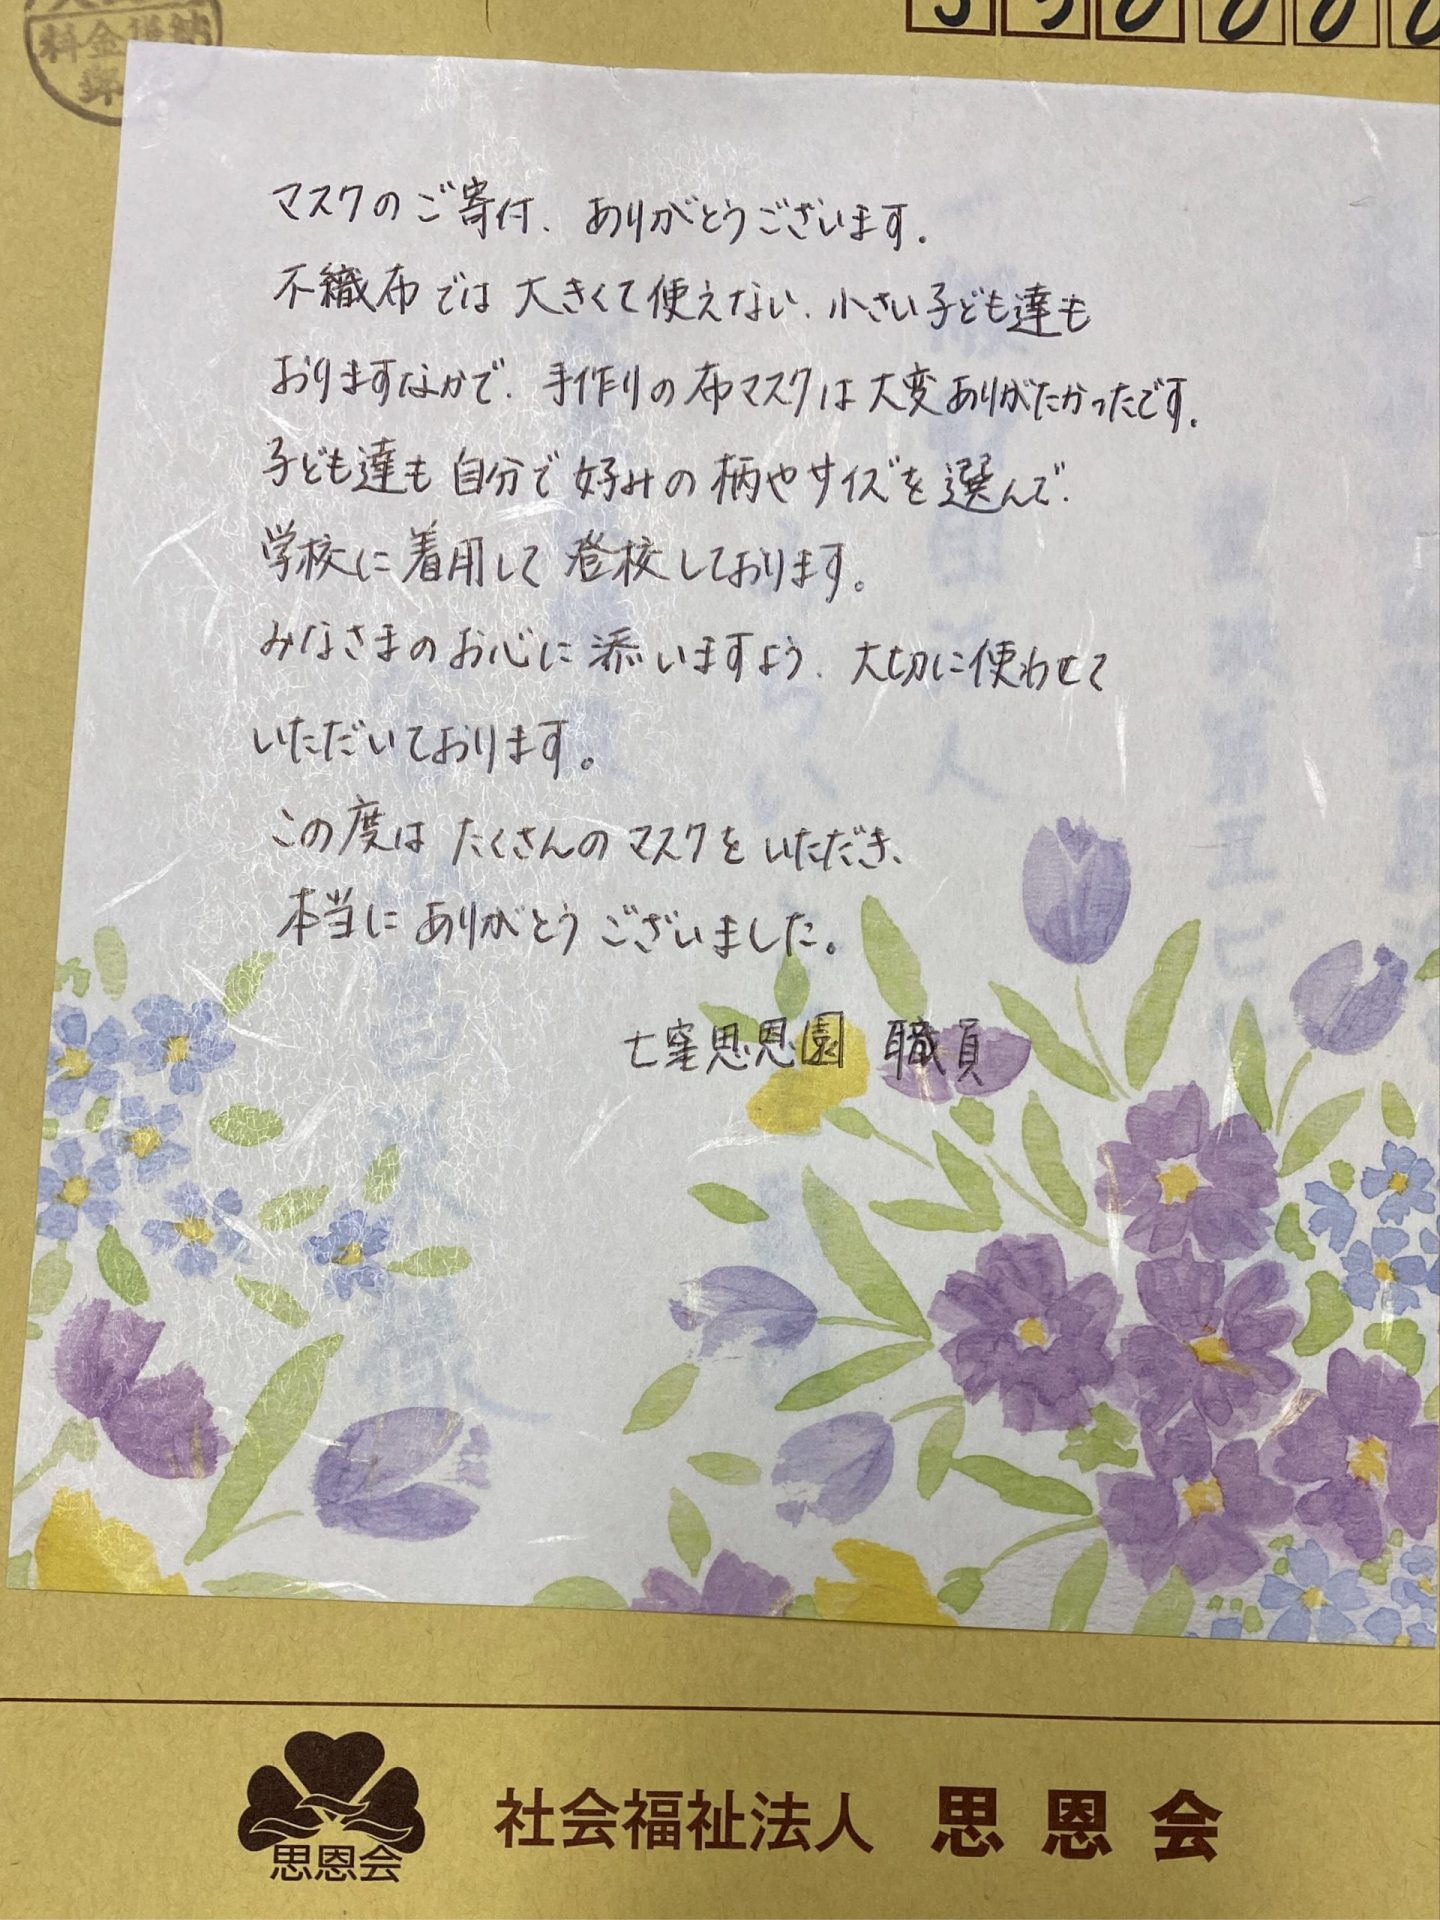 料金後納
マスクのご寄付、ありがとうございます。
不織布では大きくて使えない、小さい子ども達も
おりますなかで、手作りの布マスクは大変ありがたかったです。
子ども達も自分で好みの柄やサイズを選んで、
学校に着用して登校しております。
みなさまのお心に添いますよう、大切に使わせて
いただいております。
この度はたくさんのマスクをいただき、
本当にありがとうございました。
七窪思恩園 職員
思恩会
社会福祉法人 思恩会